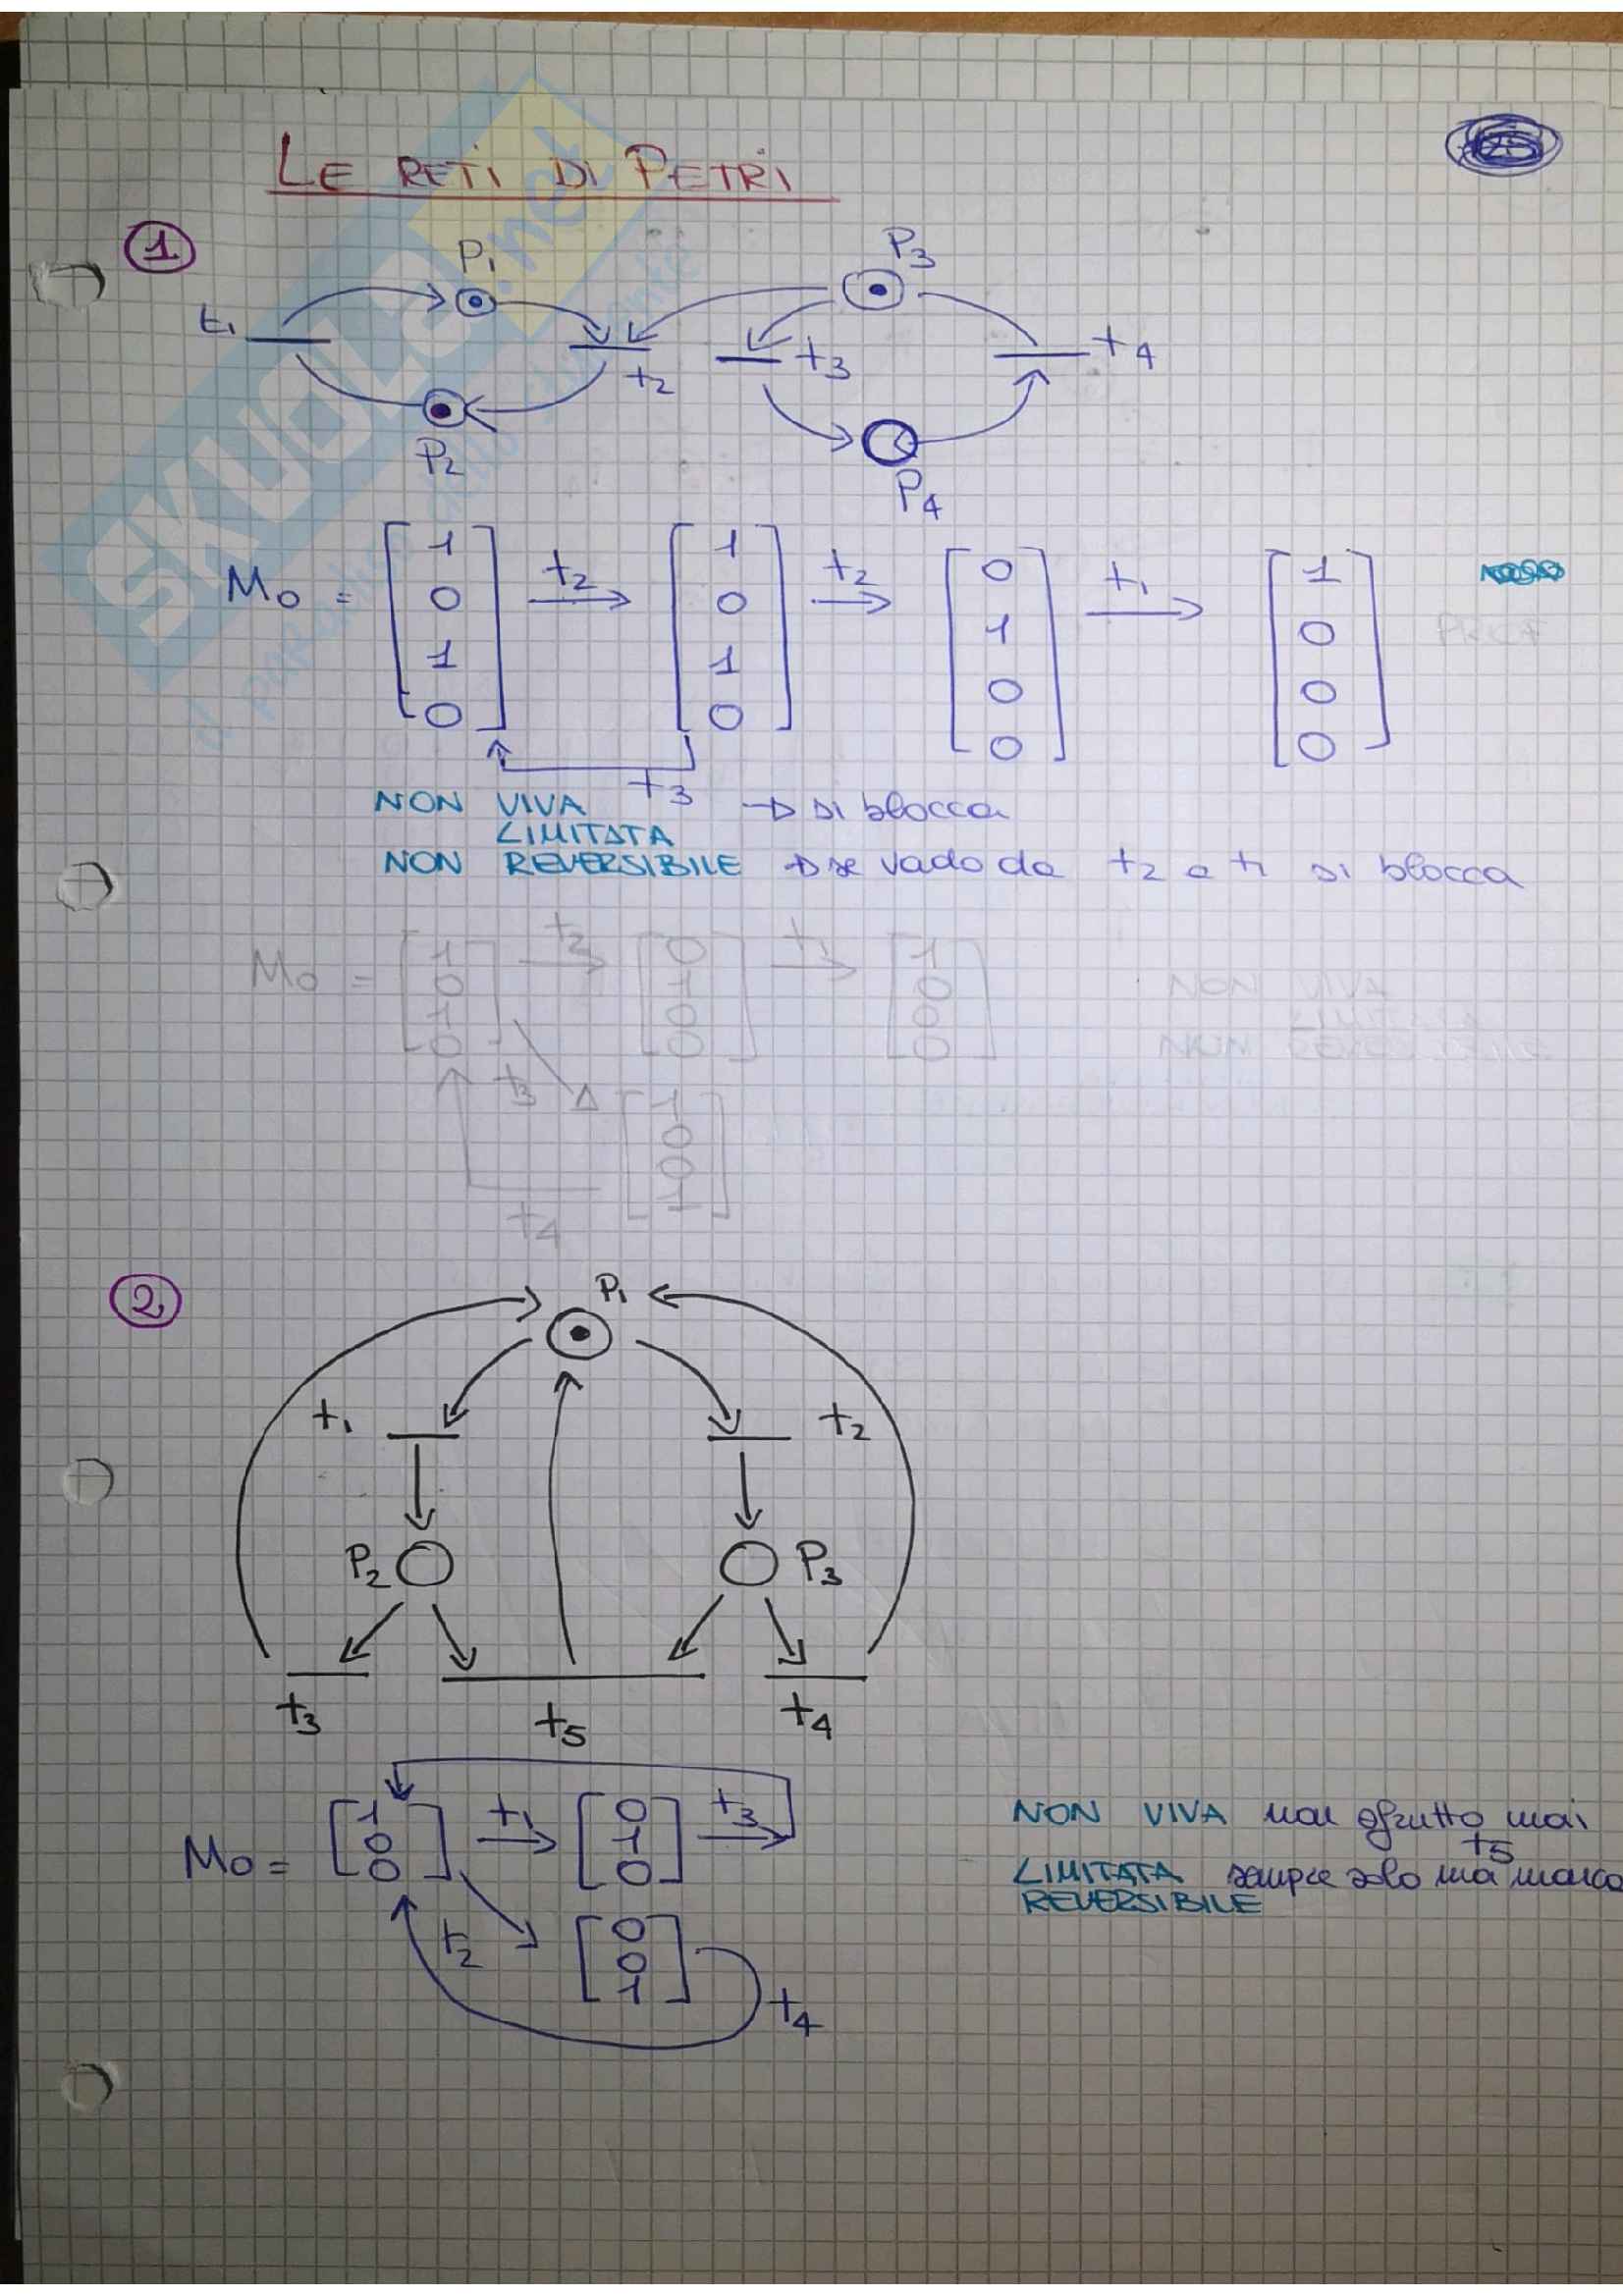 LE RETI DI PETRI
1
P1
P3
t1
t2
t3
t4
P2
P4
M0 = [1 0 1 0] t2 [1 0 1 0] t2 [0 1 0 0] t1 [1 0 0 0]
t3
NON VIVA → si blocca
LIMITATA
NON REVERSIBILE → se vado da t2 a t1 si blocca
M0 = [1 0 1 0] t2 [0 1 0 0] t1 [1 0 0 0]
NON VIVA
t3
[1 0 0 1]
t4
2
P1
t1
t2
P2
P3
t3
t5
t4
M0 = [1 0 0] t1 [0 1 0] t3
NON VIVA non sfrutto mai t5
LIMITATA sempre solo una marca
REVERSIBILE
t2 [0 0 1] t4
SKUOLA.net